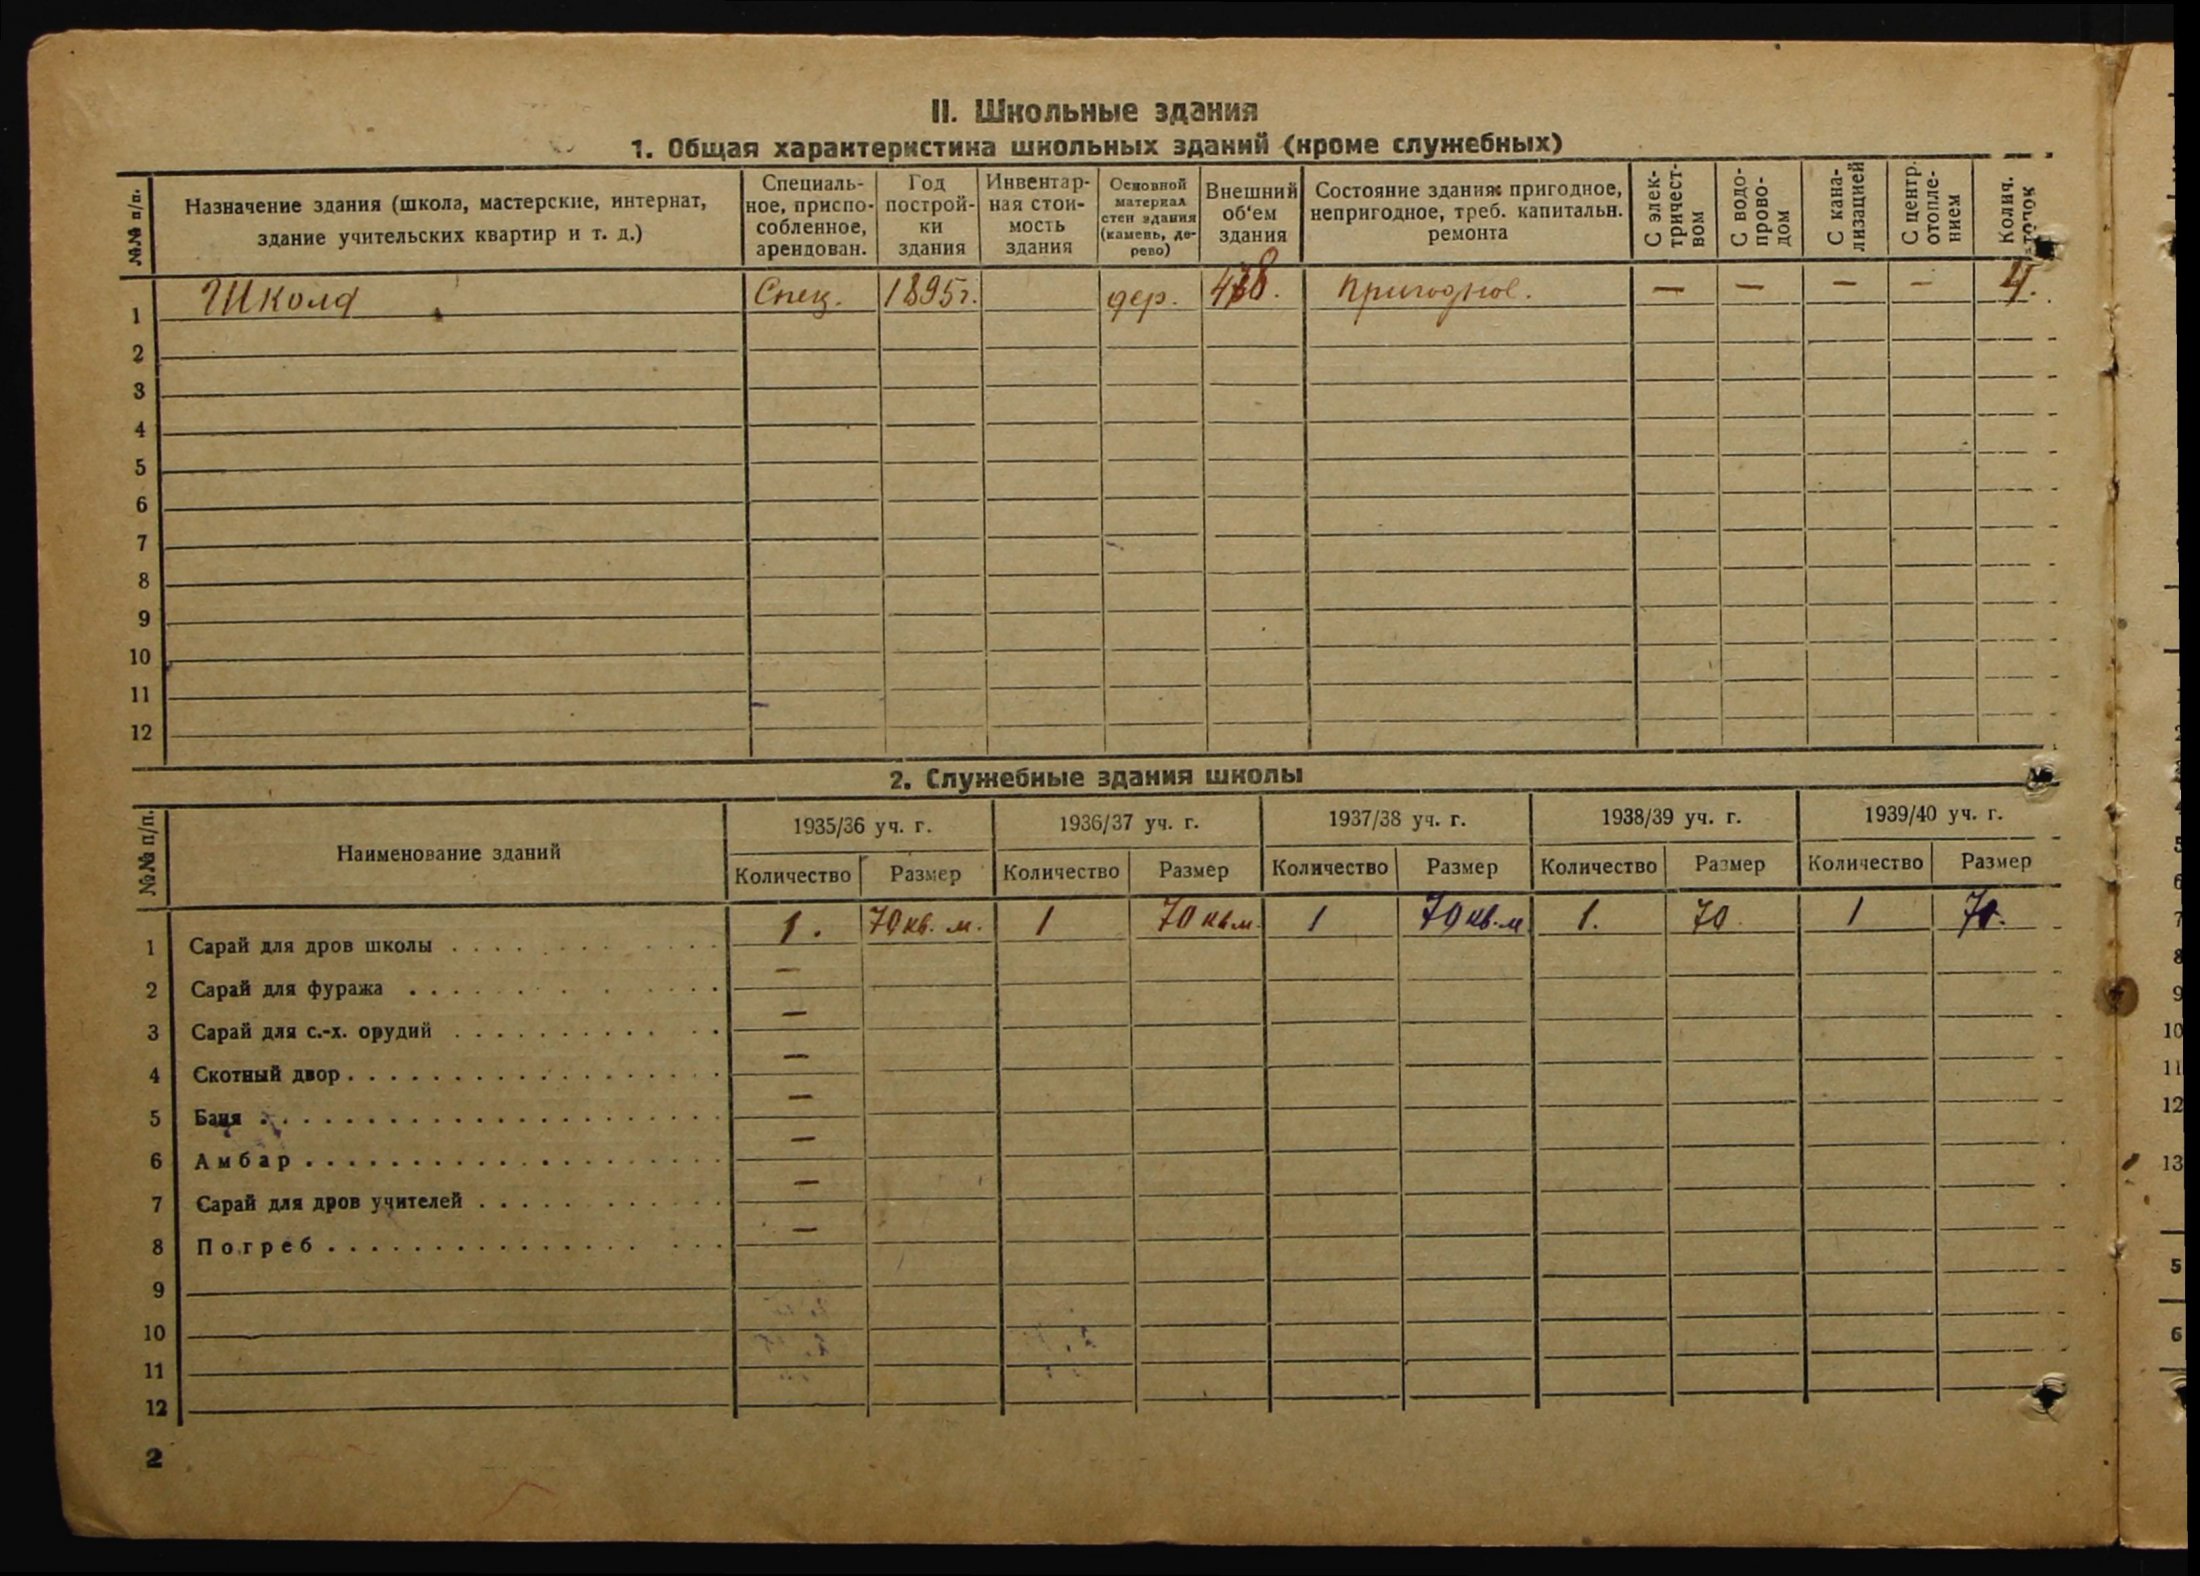 II. Школьные здания
1. Общая характеристика школьных зданий (кроме служебных)
№№ п/п.
Назначение здания (школа, мастерские, интернат,
здание учительских квартир и т. д.)
Специаль-
ное, приспо-
собленное,
арендован.
Год
построй-
ки
здания
Инвентар-
ная стои-
мость
здания
Основной
материал
стен здания
(камень, де-
рево)
Внешний
об'ем
здания
Состояние здания: пригодное,
непригодное, треб. капитальн.
ремонта
С элек-
тричест-
вом
С водо-
прово-
дом
С кана-
лизацией
С центр.
отопле-
нием
Колич.
1 Школа Спец. 1895г. дер. Пригодное. — — — — 4.
2
3
4
5
6
7
8
9
10
11
12
2. Служебные здания школы
№№ п/п.
Наименование зданий
1935/36 уч. г. 1936/37 уч. г. 1937/38 уч. г. 1938/39 уч. г. 1939/40 уч. г.
Количество Размер Количество Размер Количество Размер Количество Размер Количество Размер
1 Сарай для дров школы . . . . . . . . . . 1. 70 кв. м. 1 70 кв м. 1 70 кв. м 1. 70 1 70.
2 Сарай для фуража . . . . . . . . . . —
3 Сарай для с.-х. орудий . . . . . . . . . . —
4 Скотный двор . . . . . . . . . . —
5 Баня . . . . . . . . . . —
6 Амбар . . . . . . . . . . —
7 Сарай для дров учителей . . . . . . . . . . —
8 Погреб . . . . . . . . . . —
9
10
11
12
2
5
6
7
8
9
10
11
12
13
5
6